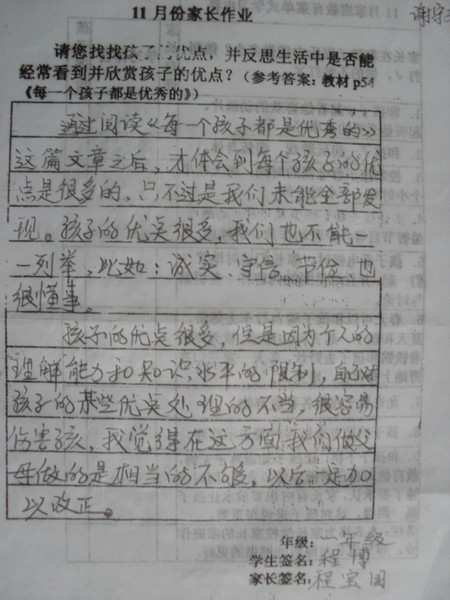 11月份家长作业
请您找找孩子的优点，并反思生活中是否能
经常看到并欣赏孩子的优点？（参考答案：教材p54
《每一个孩子都是优秀的》）
通过阅读《每一个孩子都是优秀的》
这篇文章之后，才体会到每个孩子的优
点是很多的，只不过是我们未能全部发
现。孩子的优点很多，我们也不能一
一列举，比如：诚实、守信、节俭、也
很懂事。
孩子的优点很多，但是因为个人的
理解能力和知识水平的限制，
孩子的某些优点处理的不当，很容易
伤害孩，我觉得在这方面我们做父
母做的是相当的不够，以后一定加
以改正。
年级：一年级
学生签名：程博
家长签名：程宝国